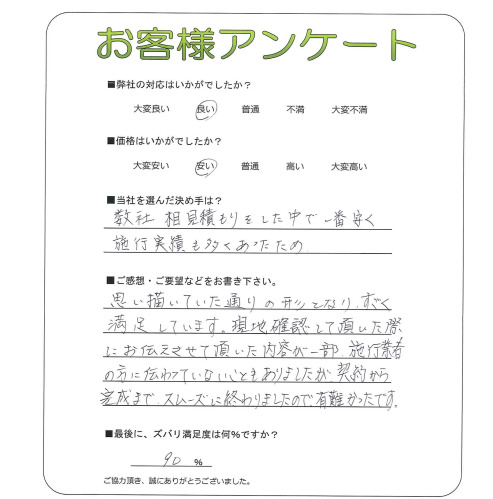 お客様アンケート
■弊社の対応はいかがでしたか？
大変良い 良い 普通 不満 大変不満
■価格はいかがでしたか？
大変安い 安い 普通 高い 大変高い
■当社を選んだ決め手は？
数社 相見積もりをした中で一番安く
施行実績も多くあったため
■ご感想・ご要望などをお書き下さい。
思い描いていた通りの形となり、すごく
満足しています。現地確認して頂いた際
にお伝えさせて頂いた内容が一部、施行業者
の方に伝わっていないこともありましたが契約から
完成まで、スムーズに終わりましたので有難かったです。
■最後に、ズバリ満足度は何%ですか？
90 %
ご協力頂き、誠にありがとうございました。